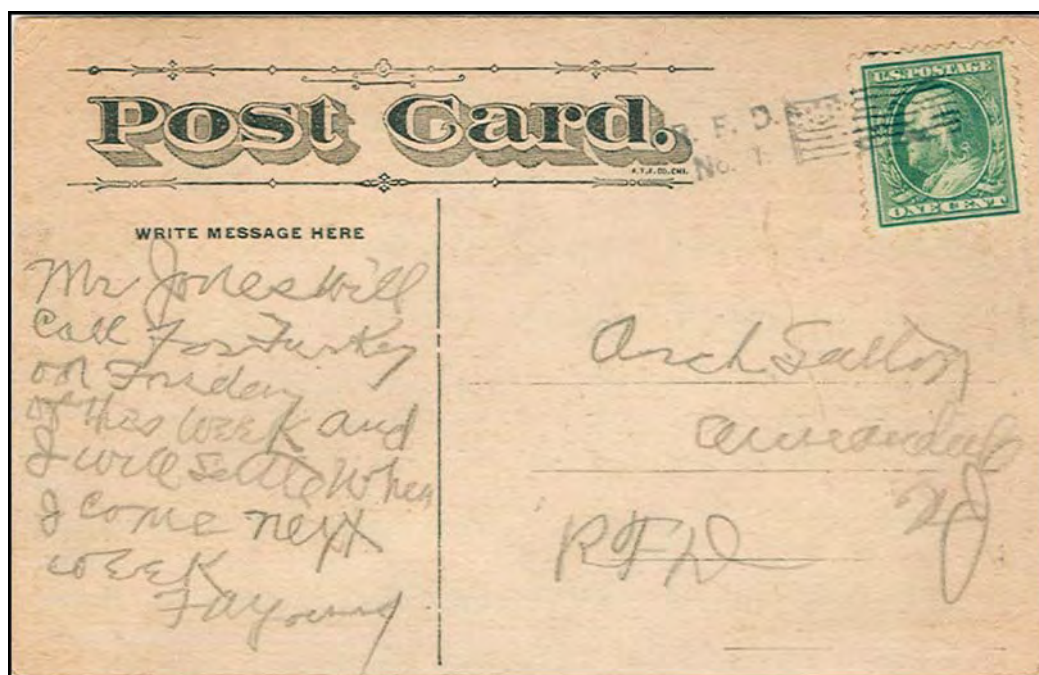 Post Card.
A.T.F. CO. CHI.
R. F. D.
No. 1.
U.S. POSTAGE
ONE CENT
WRITE MESSAGE HERE
Mr Jones will
Call For Turkey
on Friday
of this week and
I will Settle When
I come next
week
F A Young
Arch
Annandale
N J
RFD